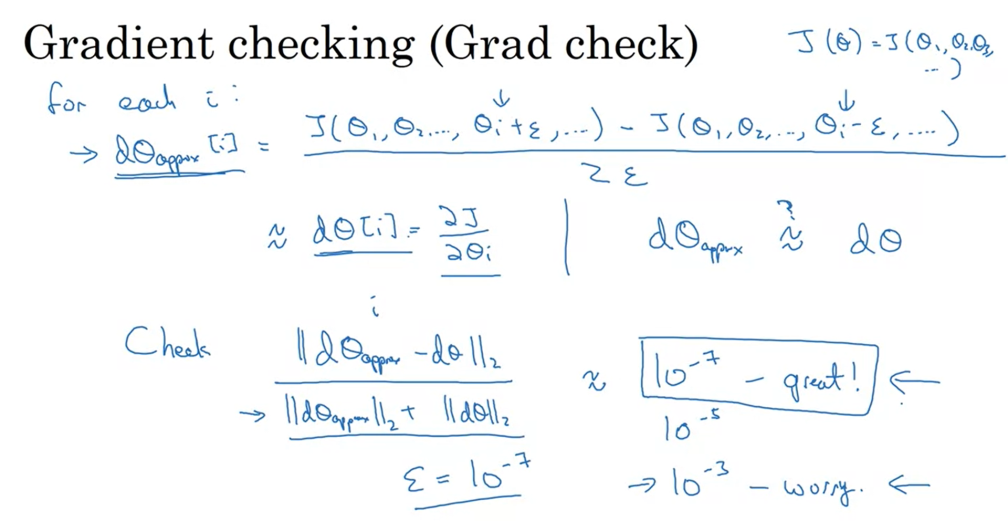 Gradient checking (Grad check)
J(θ) = J(θ₁, θ₂, θ₃, ...)
for each i:
→ dθapprox[i] = J(θ₁, θ₂, ..., θᵢ+ε, ...) - J(θ₁, θ₂, ..., θᵢ-ε, ...) / 2ε
≈ dθ[i] = ∂J/∂θᵢ | dθapprox ≈? dθ
i
Check ||dθapprox - dθ||₂ / → ||dθapprox||₂ + ||dθ||₂ ≈ 10⁻⁷ - great! ←
10⁻⁵
ε = 10⁻⁷ → 10⁻³ - worry. ←